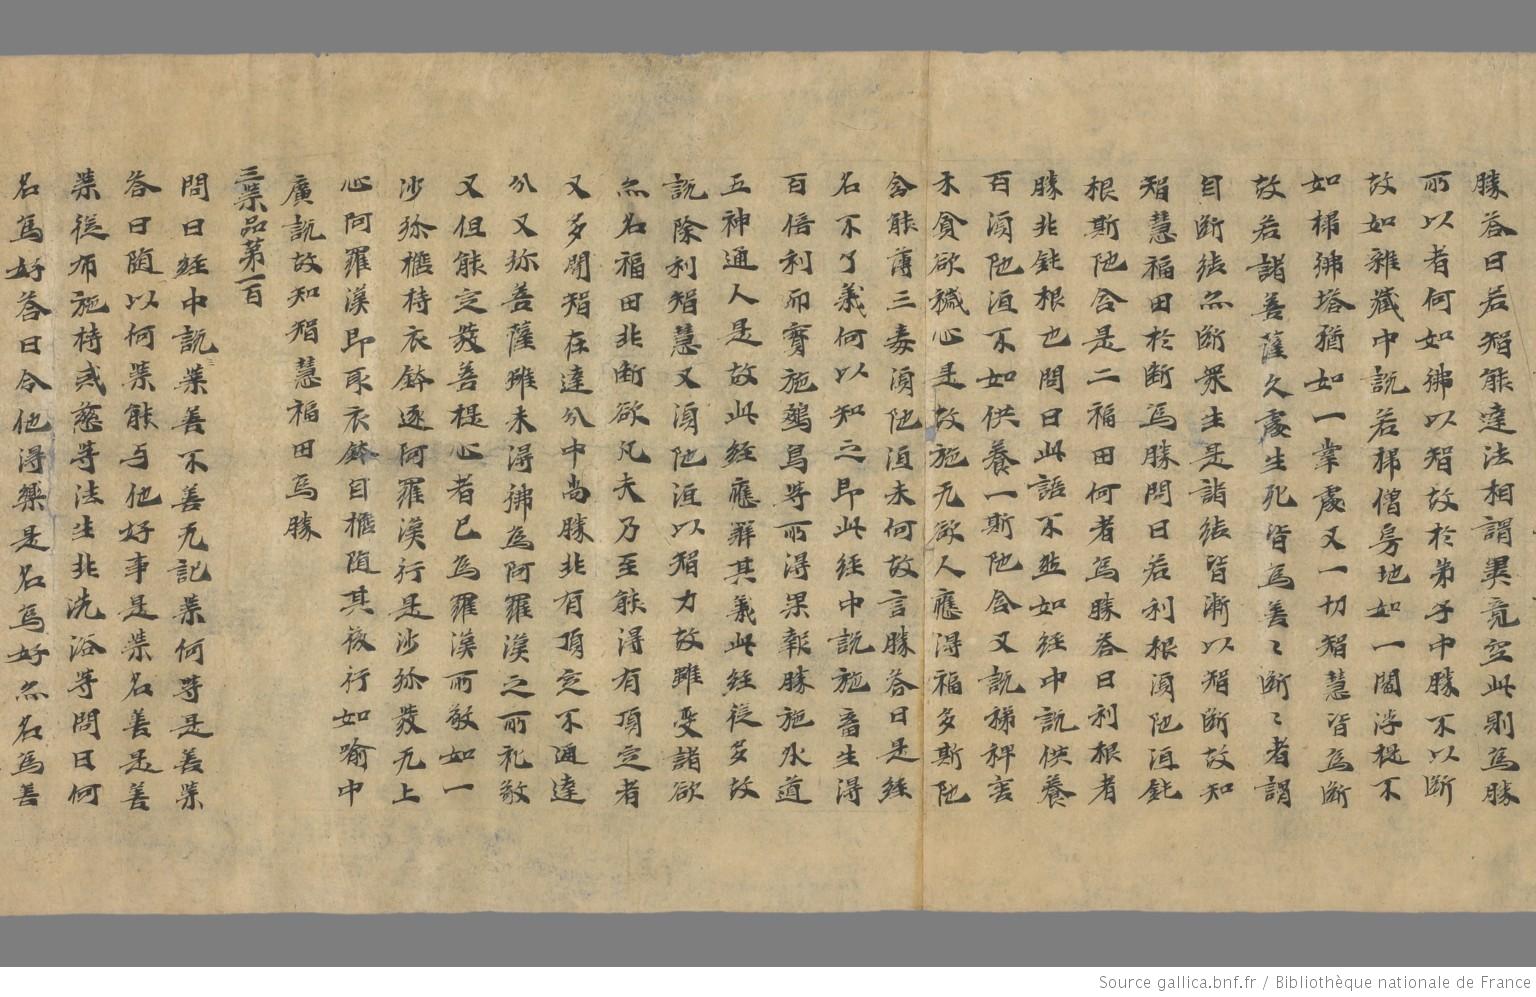 勝答曰若智能達法相謂畢竟空此則為勝
所以者何如佛以智故於弟子中勝不以断
故如雜藏中說若掃僧房地如一閻浮提不
如掃佛塔猶如一掌處又一切智慧皆為断
故若諸菩薩久處生死皆為善〻断〻者謂
自断結亦断衆生是諸結皆漸以智断故知
智慧福田於断為勝問曰若利根湏陁洹鈍
根斯陁含是二福田何者為勝答曰利根者
勝非鈍根也問曰此語不然如經中說供養
百湏陁洹不如供養一斯陁含又說稊稗害
禾貪欲穢心是故施无欲人應得福多斯陁
含能薄三毒湏陁洹未何故言勝答曰是經
名不了義何以知之即此經中說施畜生得
百倍利而實施鵽鳥等所得果報勝施外道
五神通人是故此經應觧其義此經従多故
說除利智慧又湏陁洹以智力故雖受諸欲
亦名福田非断欲凡夫乃至能得有頂定者
又多聞智在達分中尚勝非有頂定不通達
分又弥菩薩雖未得佛為阿羅漢之所礼敬
又但能定發菩提心者已為羅漢所敬如一
沙弥檐持衣鉢逐阿羅漢行是沙弥發无上
心阿羅漢即取衣鉢自檐随其後行如喻中
廣說故知智慧福田為勝
三業品第一百
問曰經中說業善不善无記業何等是善業
答曰随以何業能与他好事是業名善是善
業従布施持戒慈等法生非洗浴等問曰何
名為好答曰令他得樂是名為好亦名為善
Source gallica.bnf.fr / Bibliothèque nationale de France